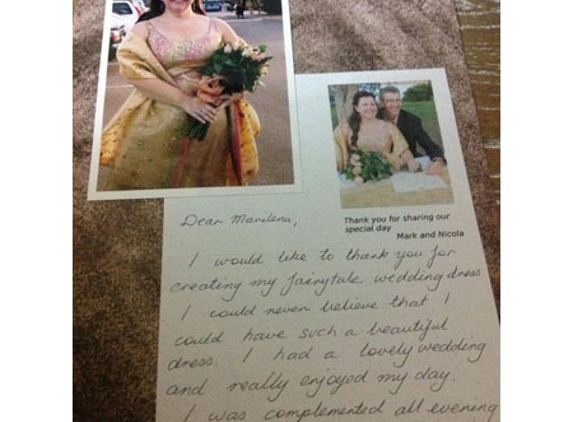 Dear Marilena,
Thank you for sharing our
special day
Mark and Nicola
I would like to thank you for
creating my fairytale wedding dress.
I could never believe that I
could have such a beautiful
dress. I had a lovely wedding
and really enjoyed my day.
I was complemented all evening